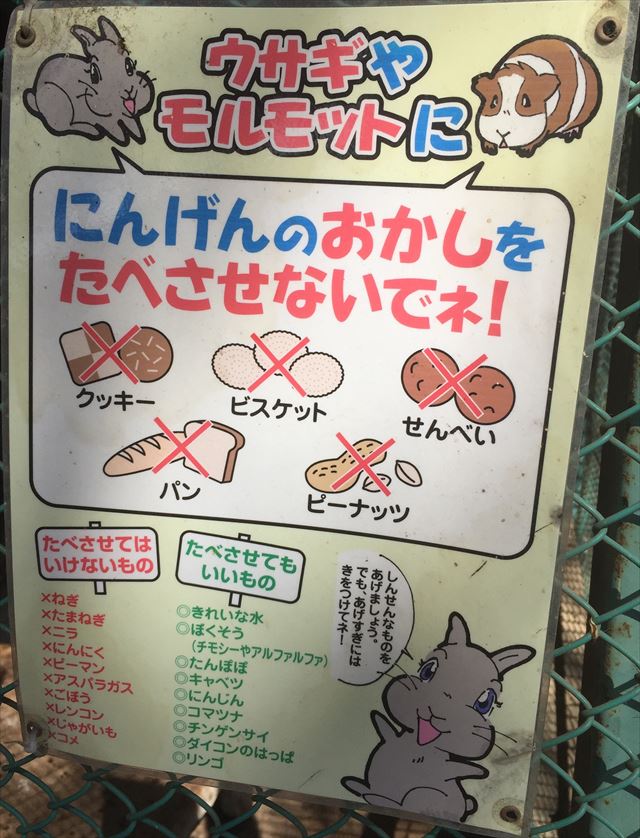 ウサギや
モルモットに
にんげんのおかしを
たべさせないでネ!
クッキー
ビスケット
せんべい
パン
ピーナッツ
たべさせては
いけないもの
×ねぎ
×たまねぎ
×ニラ
×にんにく
×ピーマン
×アスパラガス
×ごぼう
×レンコン
×じゃがいも
×コメ
たべさせても
いいもの
◎きれいな水
◎ぼくそう
(チモシーやアルファルファ)
◎たんぽぽ
◎キャベツ
◎にんじん
◎コマツナ
◎チンゲンサイ
◎ダイコンのはっぱ
◎リンゴ
しんせんなものを
あげましょう。
でも、あげすぎには
きをつけてネ!